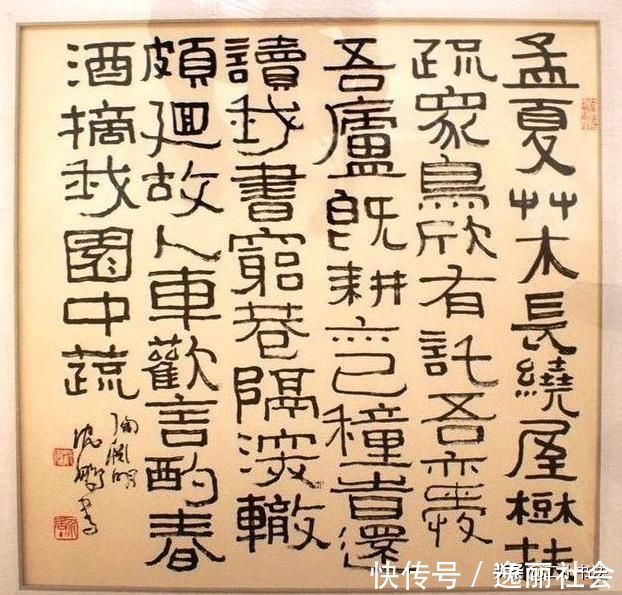 孟夏艸木長繞屋樹扶
疏眾鳥欣有託吾亦愛
吾廬既耕亦已種旹還
讀我書窮巷隔深轍
頗廻故人車歡言酌春
酒摘我園中蔬
陶淵明
沈鵬書
快传号／逸丽社会